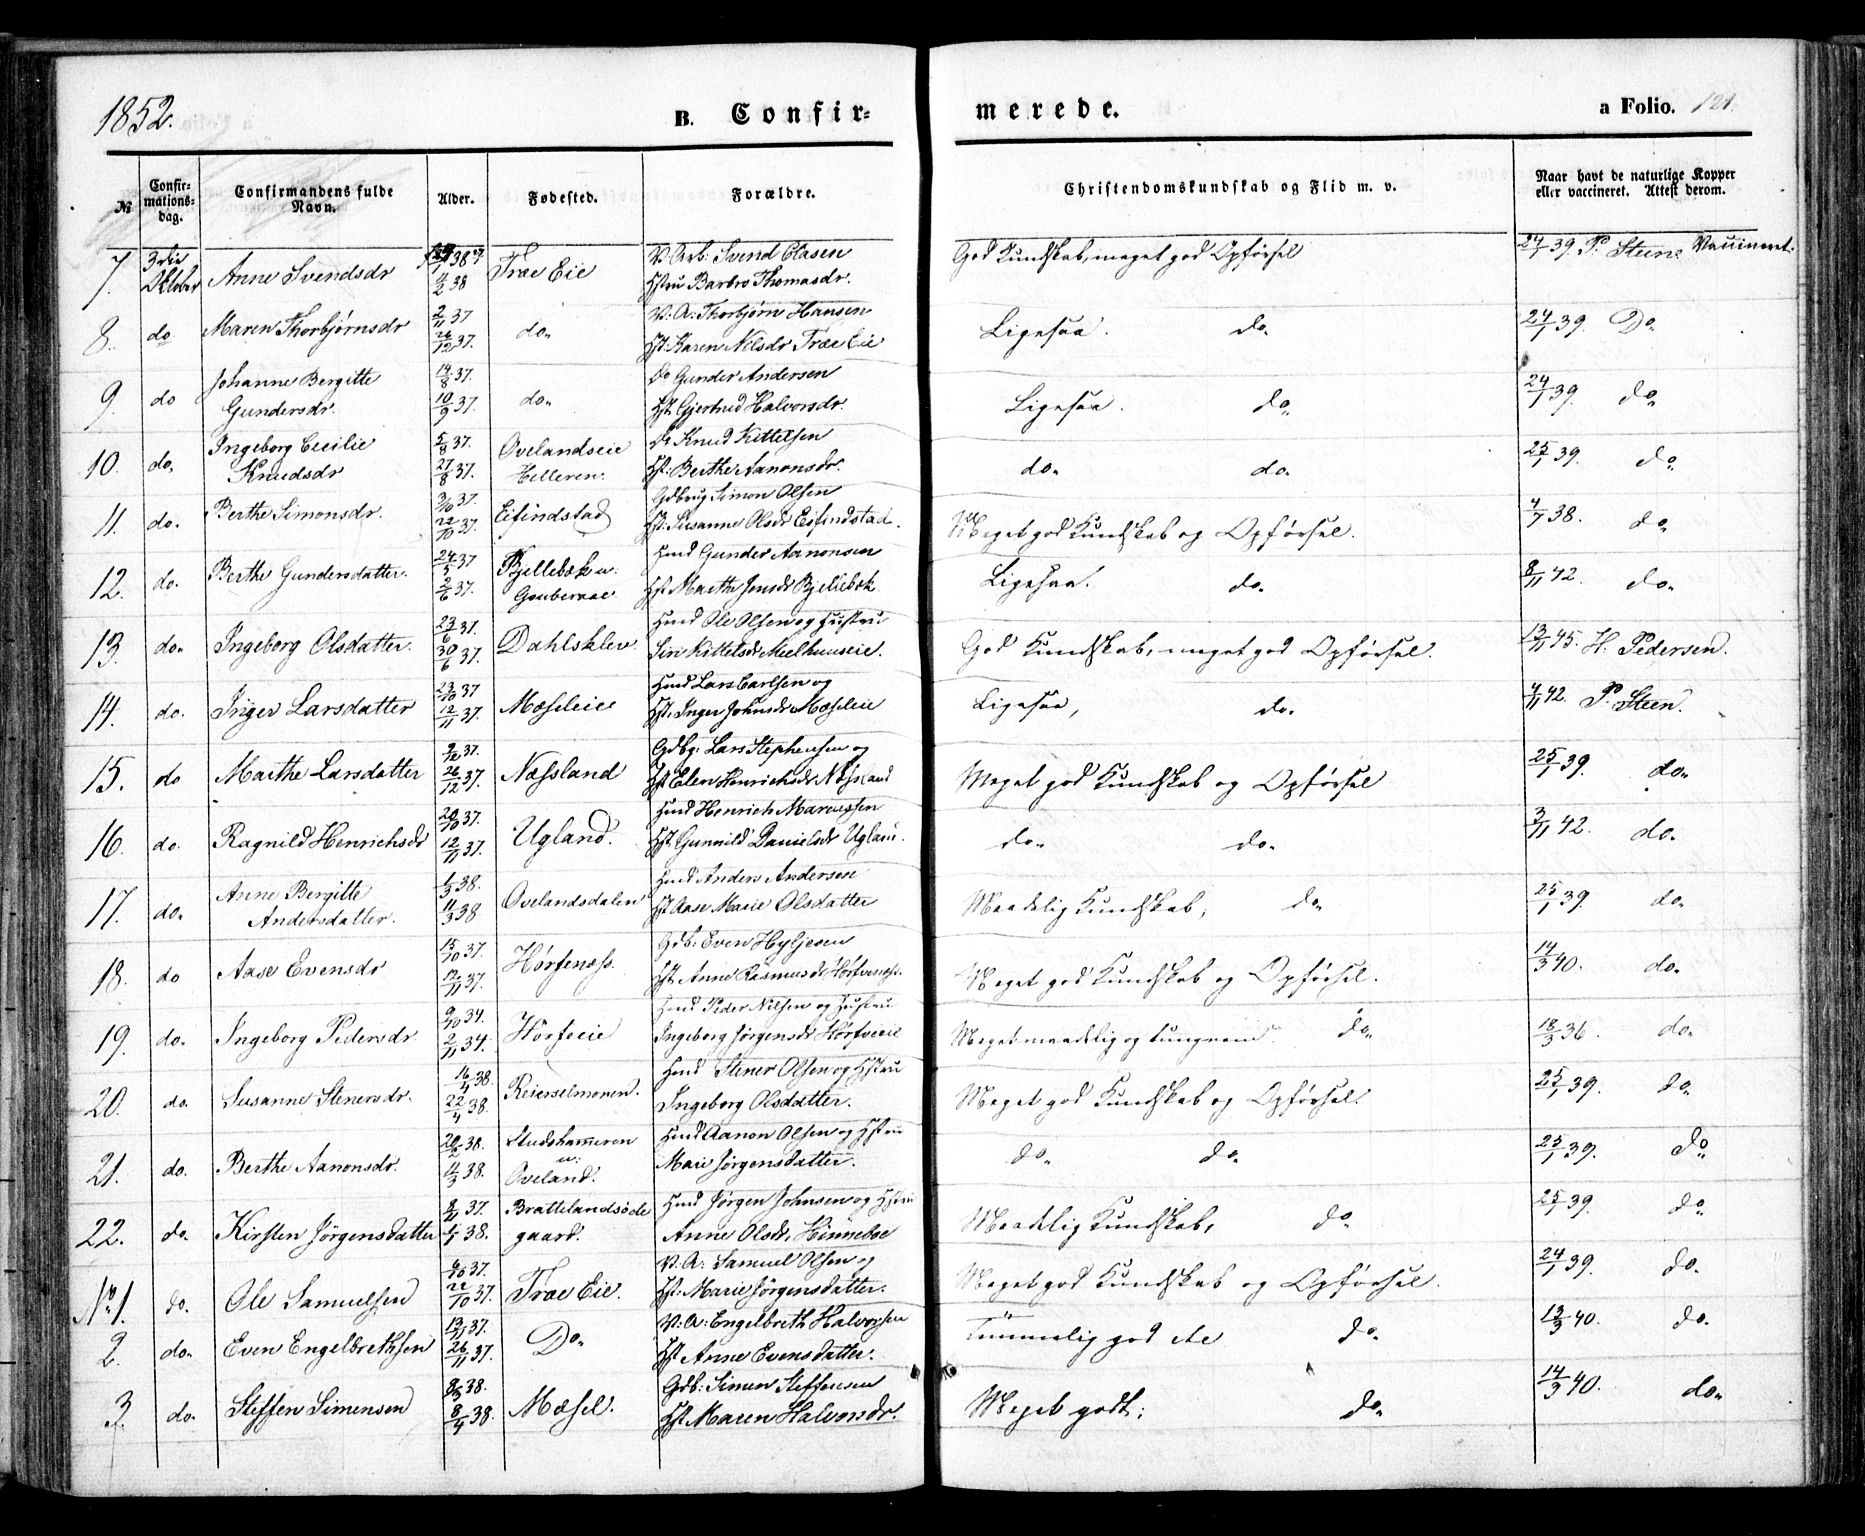 1852.
B. Confir-
merede.
a Folio. 121.
№
Confir-
mations-
dag.
Confirmandens fulde
Navn.
Alder.
Fødested.
Forældre.
Christendomskundskab og Flid m. v.
Naar havt de naturlige Kopper
eller vaccineret. Attest derom.
7. 3die Oktober Anne Svendsdr 4/2 38 Træ Eie V. Arb: Svend Olasen
Hstru Barbro Thomasdr.
God Kundskab, meget god Opførsel 24/1 39. P. Steen Vaccineret.
8. do Maren Thorbjørnsdr 2/11 37 26/12 37. do. V: A: Thorbjørn Hansen
Hst: Karen Nilsdr Træ Eie
Ligesaa. do. 24/1 39. Do
9. do Johanne Bergitte
Gundersdr. 14/8 37. 10/9 37. do. Do Gunder Andersen
Hst: Gjertrud Halvorsdr.
Ligesaa. do 24/1 39. do
10. do. Ingeborg Cecilie
Knudsdr 5/8 37. 27/8 37. Ovelandseie
Helleren. Do Knud Kittelsen
Hst: Berthe Aanonsdr.
do. do. 25/1 39. do
11. do. Berthe Simonsdr. 3/10 37. 22/10 37. Eifindstad Gdbrug Simon Olsen
Hst: Susanne Olsdr Eifindstad.
Meget god Kundskab og Opførsel. 4/7 38. do
12. do. Berthe Gundersdatter. 24/5 37 2/6 37. Bjellebæk u: Hmd Gunder Aanonsen
Hst Marthe Jensdr Bjellebæk
Ligesaa. do. 8/11 42. do.
13. do. Ingeborg Olsdatter. 23/6 37. 30/6 37. Dahlsklev. Hmd Ole Olsen og Hustru
Siri Kittelsdr Meelhuuseie.
God Kundskab, meget god Opførsel. 13/11 45. H. Pedersen.
14. do. Inger Larsdatter 23/10 37 12/11 37. Mæseleie Hmd Lars Carlsen og
Hst. Inger Johnsdr Mæseleie
Ligesaa, do. 4/11 42. P. Steen.
15. do Marthe Larsdatter 9/12 37. 26/12 37. Næssland Gdbg: Lars Stephensen og
Hst Elen Henrichsdr Næssland
Meget god Kundskab og Opførsel 25/1 39. do.
16. do. Ragnild Henrichsdr 20/10 37. 12/11 37. Ugland. Hmd Henrich Marcussen
Hst. Gunnild Danielsdr Uglan.
do. do. 3/11 42. do.
17. do. Anne Bergitte
Andersdatter. 1/3 38. 11/3 38 Ovelandsdalen Hmd Anders Andersen
Hst Aase Marie Olsdatter
Maadelig Kundskab, do. 25/1 39. do.
18. do Aase Evensdr 15/10 37. 12/11 37. Hørfenæss. Gdb: Even Hyljesen
Hst. Anne Rasmusdr Hørfvenæss.
Meget god Kundskab og Opførsel. 14/3 40. do.
19. do. Ingeborg Pedersdr. 9/10 34. 2/11 34. Hørfeeie Hmd Peder Nilsen og Hustru
Ingeborg Jørgensdr Hørfveeie
Meget maadelig og tungnem do. 18/3 36. do.
20. do. Susanne Stenersdr. 16/4 38. 22/4 38. Reiersølmonen. Hmd Stener Olsen og Hstru
Ingeborg Olsdatter.
Meget god Kundskab og Opførsel. 25/1 39. do.
21. do. Berthe Aanonsdr. 20/2 38. 11/3 38. Studshammeren
u:
Oveland. Hmd Aanon Olsen og Hstru
Marie Jørgensdatter.
do. do. 25/1 39. do
22. do. Kirsten Jørgensdatter Brattelandsøde
gaard. Hmd Jørgen Johnsen og Hstru
Anne Olsdr. Hinneboe
Maadelig Kundskab, do. 25/1 39. do.
No 1. do. Ole Samuelsen 6/10 37. 22/10 37. Træ Eie. V. A: Samuel Olsen og
Hst: Marie Jørgensdatter.
Meget god Kundskab og Opførsel. 24/1 39. do.
2. do. Even Engelbrethsen 13/11 37. 26/11 37. Do. V: A: Engelbreth Halvorsen
Hst Anne Evensdatter.
Temmelig god do do. 13/3 40. do.
3. do. Steffen Simensen 8/3 38. 8/4 38. Mæsel. Gdb: Simen Steffensen
Hst. Maren Halvorsdr.
Meget godt; do. 14/3 40. do.